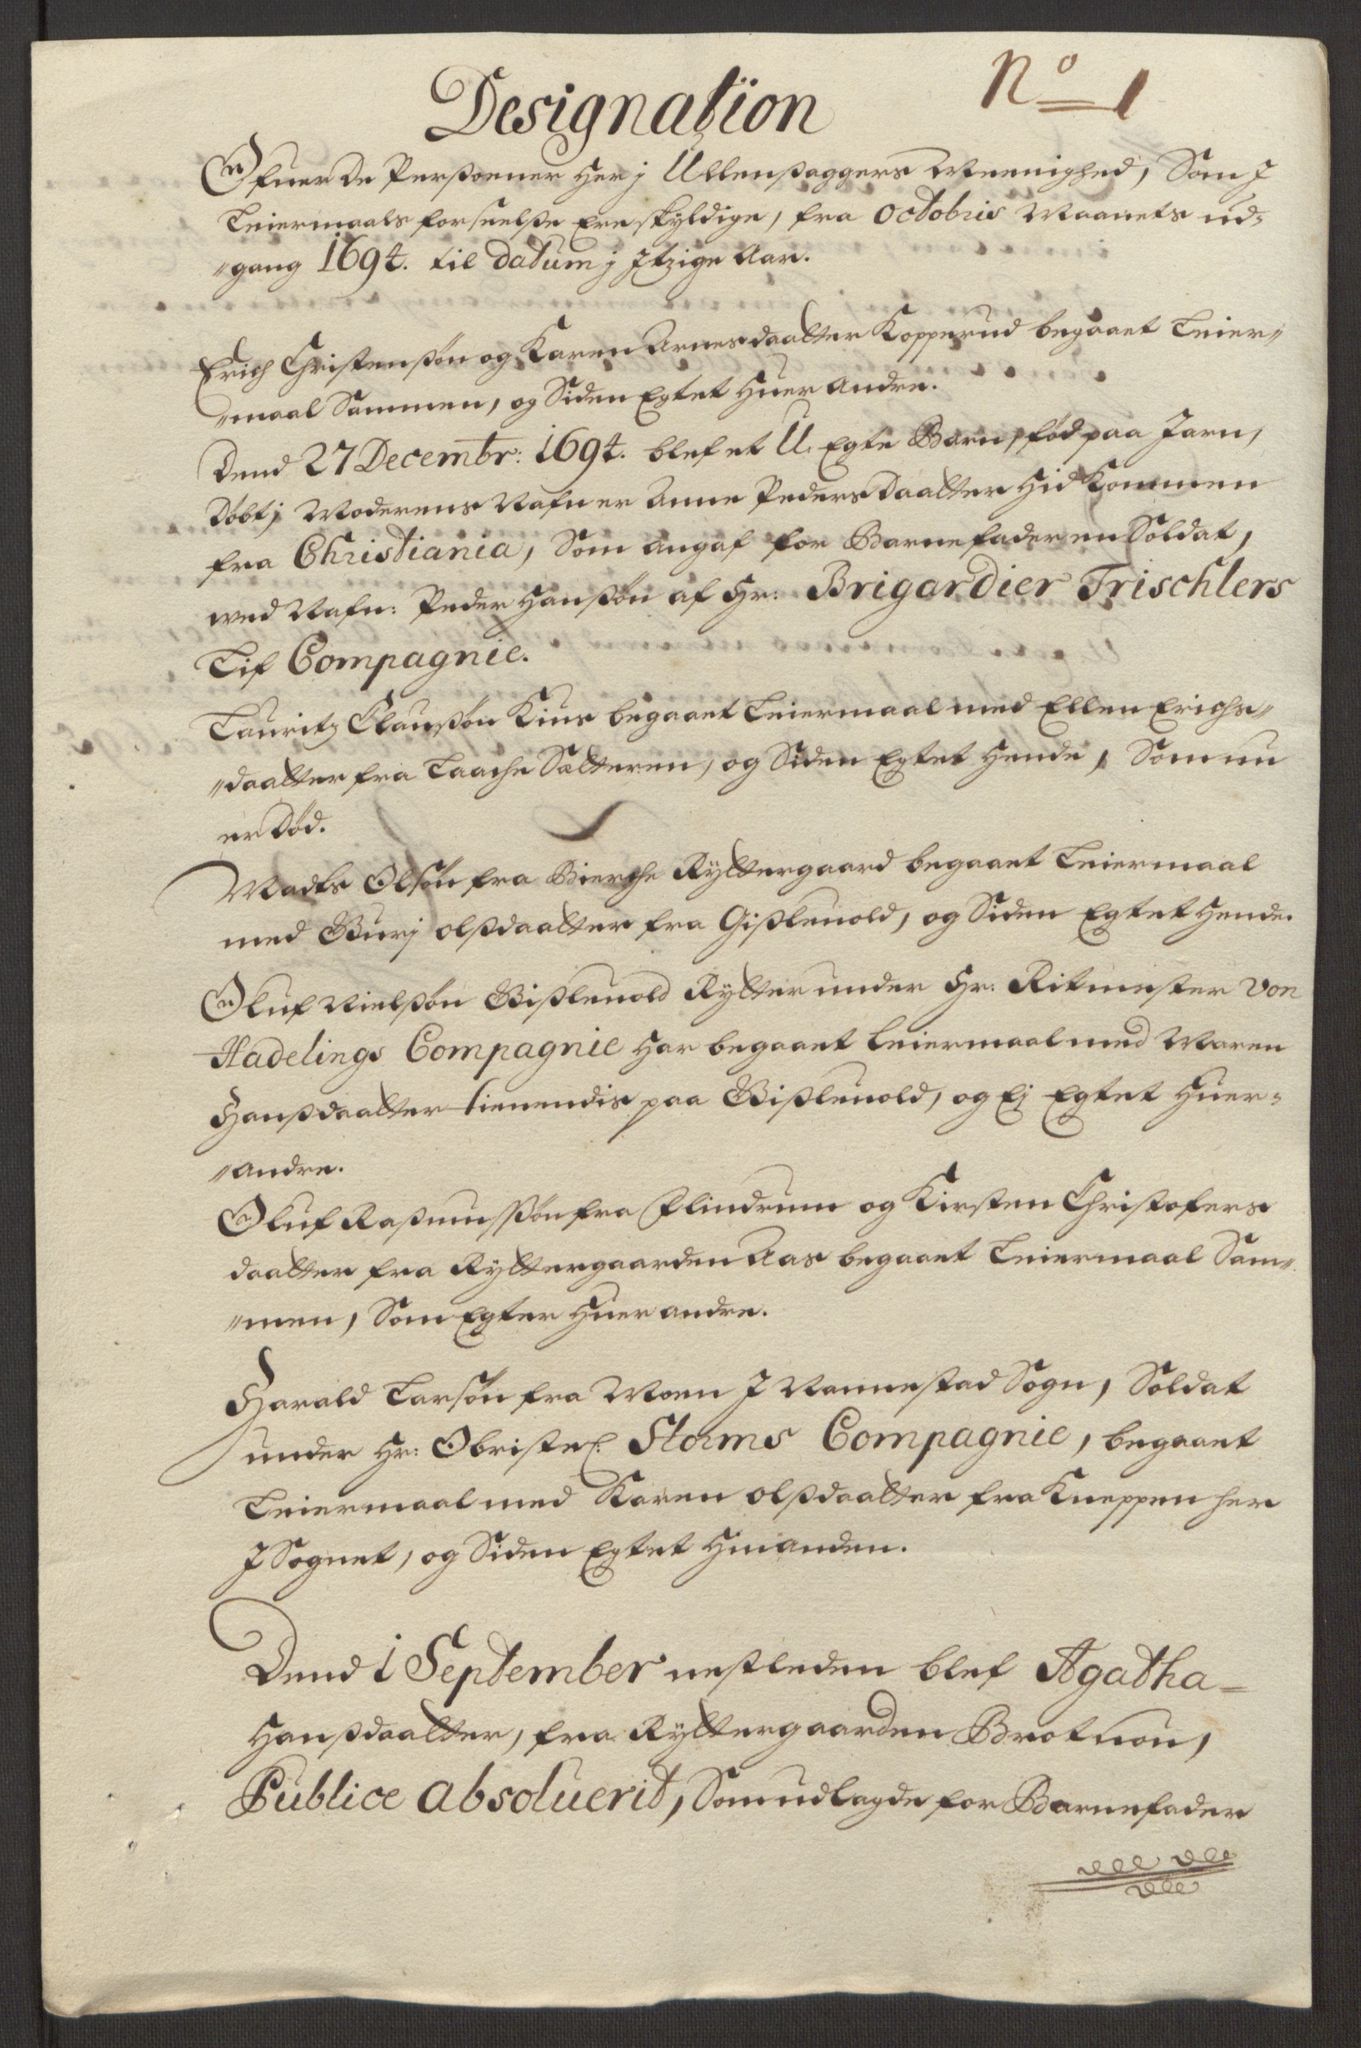 No 1
Designation
Ofuer de Perßoener her j Ullenßaggers Meenighed, Som J
Leiermaals forseelße ere skyldige, fra octobris Maanets ud=
"gang 1694. til datum j Jtzige Aar.
Erich Christenßøn og Karen Arnesdaatter Kopperud begaaet Leier"
"maal Sammen, og Siden Egtet Huer Andre.
Dend 27 Decembr: 1694. blef et U. Egte Barn, fød paa Jarn,
døbt; Moderens Nafn er Anne Peders Daatter hid kommen
fra Christiania, Som angaf for Barnefader en Soldat,
ved Nafn: Peder Hanßøn af Hr: Brigardier Trischlers
Lif Compagnie.
Lauritz Claußøn Kius begaaet Leiermaal med Ellen Erichs"
"daatter fra Laache Sætteren, og Siden Egtet hende, Som nu
er død.
Madts Olsøn fra Bierche Ryttergaard begaaet Leiermaal
med Gurj olßdaatter fra Gißleuold, og Siden Egtet hende.
Oluf Nielßøn Gißleuold Rytter under Hr: Ritmester von
Hadelings Compagnie har begaaet leiermaal med Maren
Hanßdaatter tienendis paa Gißleuold, og Ej Egtet huer=
"andre.
Oluf Raßmußøn fra Flindrum og Kirsten Christofers
daatter fra Ryttergaarden Aas begaaet Leiermaal Sam"
"men, Som Egter huer andre.
Harald Larsøn fra Moen J Nannestad Sogn, Soldat
under Hr: Obriste Storms Compagnie, begaaet
Leiermaal med Karen olßdaatter fra Kneppen her
J Sognet, og Siden Egtet hinanden.
Dend 1 September nestleden blef Agatha=
Hanßdaatter, fra Ryttergaarden Brotnou,
Publice absoluerit, Som udlagde for Barnefader